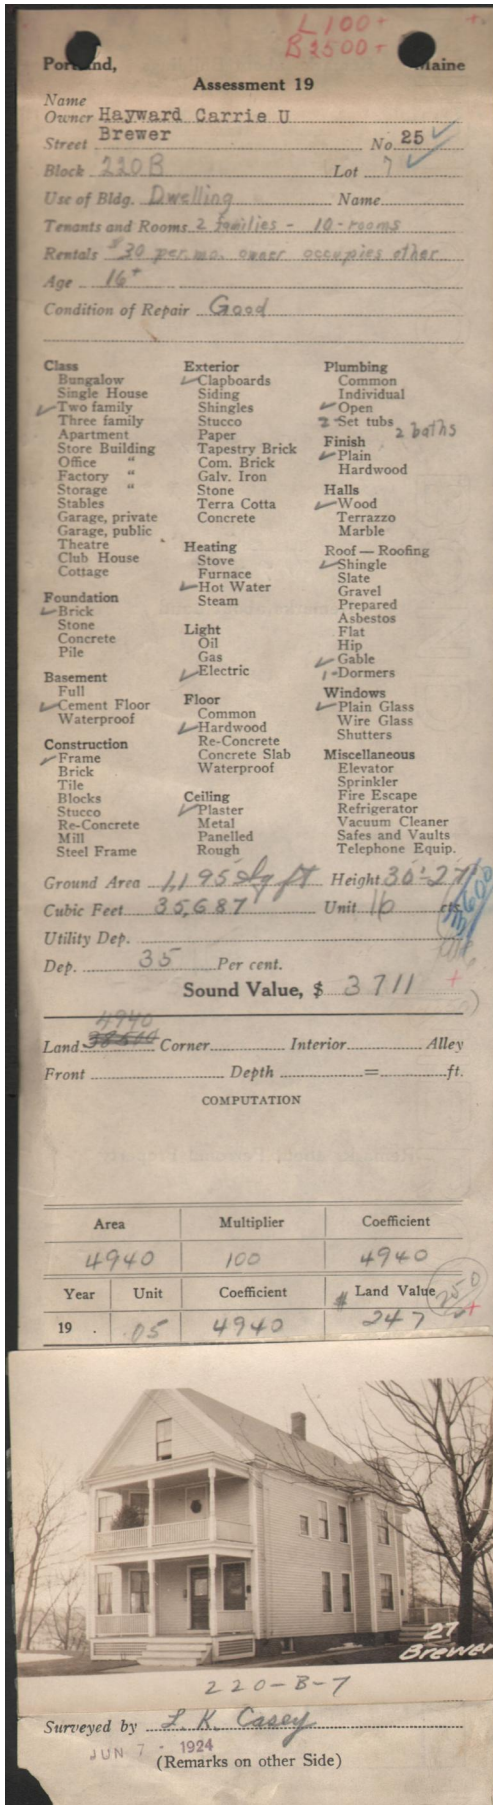 L 100 +
B 2500 +
Portland, Maine
Assessment 19
Name
Owner Hayward Carrie U
Street Brewer No. 25
Block 220 B Lot 7
Use of Bldg. Dwelling Name
Tenants and Rooms 2 families - 10-rooms
Rentals $30 per mo. owner occupies other
Age 16+
Condition of Repair Good
Class
Bungalow
Single House
✓Two family
Three family
Apartment
Store Building
Office "
Factory "
Storage "
Stables
Garage, private
Garage, public
Theatre
Club House
Cottage
Foundation
✓Brick
Stone
Concrete
Pile
Basement
Full
✓Cement Floor
Waterproof
Construction
✓Frame
Brick
Tile
Blocks
Stucco
Re-Concrete
Mill
Steel Frame
Exterior
✓Clapboards
Siding
Shingles
Stucco
Paper
Tapestry Brick
Com. Brick
Galv. Iron
Stone
Terra Cotta
Concrete
Heating
Stove
Furnace
✓Hot Water
Steam
Light
Oil
Gas
✓Electric
Floor
Common
✓Hardwood
Re-Concrete
Concrete Slab
Waterproof
Ceiling
✓Plaster
Metal
Panelled
Rough
Plumbing
Common
Individual
✓Open
2-Set tubs 2 baths
Finish
✓Plain
Hardwood
Halls
✓Wood
Terrazzo
Marble
Roof — Roofing
✓Shingle
Slate
Gravel
Prepared
Asbestos
Flat
Hip
✓Gable
1-Dormers
Windows
✓Plain Glass
Wire Glass
Shutters
Miscellaneous
Elevator
Sprinkler
Fire Escape
Refrigerator
Vacuum Cleaner
Safes and Vaults
Telephone Equip.
Ground Area 1195 sq ft Height 30'-27'
Cubic Feet 35,687 Unit 16 cts.
Utility Dep.
Dep. 35 Per cent.
Sound Value, $ 3711 +
4940
Land Corner Interior Alley
Front Depth = ft.
COMPUTATION
Area Multiplier Coefficient
4940 100 4940
Year Unit Coefficient $ Land Value 250
19 . .05 4940 247 +
27
Brewer
220-B-7
Surveyed by L. K. Casey
JUN 7 - 1924
(Remarks on other Side)